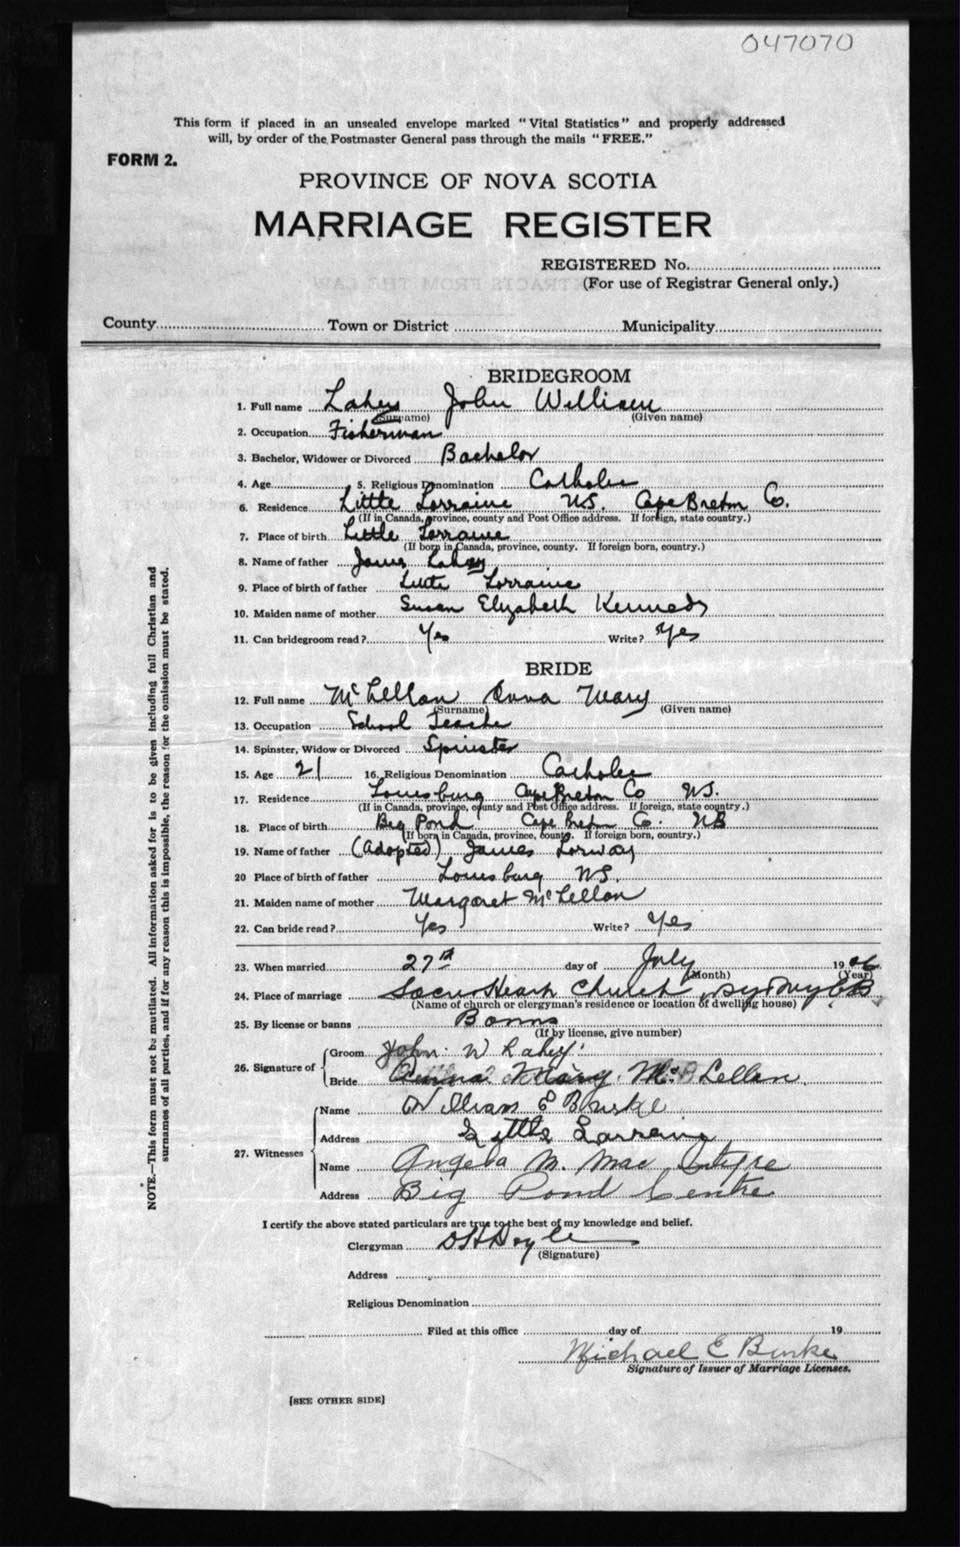 047070
This form if placed in an unsealed envelope marked "Vital Statistics" and properly addressed
will, by order of the Postmaster General pass through the mails "FREE."
FORM 2.
PROVINCE OF NOVA SCOTIA
MARRIAGE REGISTER
REGISTERED No.
(For use of Registrar General only.)
County Town or District Municipality
BRIDEGROOM
1. Full name Lahey John William
(Surname) (Given name)
2. Occupation Fisherman
3. Bachelor, Widower or Divorced Bachelor
4. Age 5. Religious Denomination Catholic
6. Residence Little Lorraine NS. Cape Breton Co.
(If in Canada, province, county and Post Office address. If foreign, state country.)
7. Place of birth Little Lorraine
(If born in Canada, province, county. If foreign born, country.)
8. Name of father James Lahey
9. Place of birth of father Little Lorraine
10. Maiden name of mother Susan Elizabeth Kennedy
11. Can bridegroom read? Yes Write? Yes
BRIDE
12. Full name McLellan Anna Mary
(Surname) (Given name)
13. Occupation School Teacher
14. Spinster, Widow or Divorced Spinster
15. Age 21 16. Religious Denomination Catholic
17. Residence Louisburg Cape Breton Co NS.
(If in Canada, province, county and Post Office address. If foreign, state country.)
18. Place of birth Big Pond Cape Breton Co.
(If born in Canada, province, county. If foreign born, country.)
19. Name of father (Adopted) James Lorway
20 Place of birth of father Louisburg NS.
21. Maiden name of mother Margaret McLellan
22. Can bride read? Yes Write? Yes
23. When married 27th day of July 19
(Month) (Year)
24. Place of marriage Sacred Heart Church, Sydney CB
(Name of church or clergyman's residence or location of dwelling house)
25. By license or banns Banns
(If by license, give number)
26. Signature of Groom John W Lahey
Bride Anna Mary McLellan
27. Witnesses Name William E Burke
Address Little Lorraine
Name Angela M. MacIntyre
Address Big Pond Centre
I certify the above stated particulars are true to the best of my knowledge and belief.
Clergyman D H Doyle
(Signature)
Address
Religious Denomination
Filed at this office day of 19
Michael E Burke
Signature of Issuer of Marriage Licenses.
[SEE OTHER SIDE]
NOTE.—This form must not be mutilated. All information asked for is to be given including full Christian and
surnames of all parties, and if for any reason this is impossible, the reason for the omission must be stated.